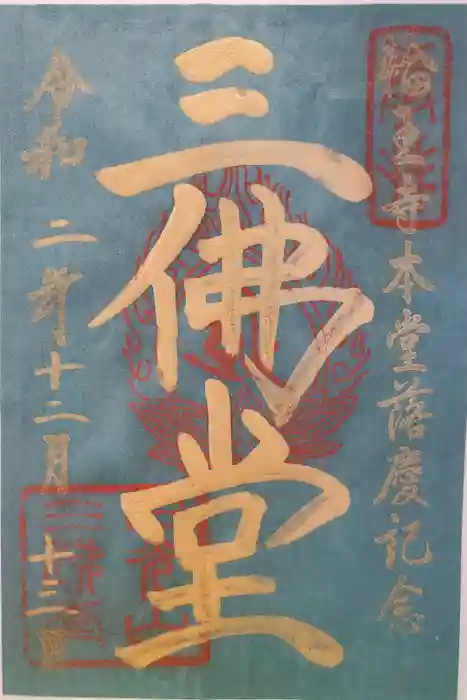 輪王寺本堂落慶記念
三佛堂
令和二年十二月十三日